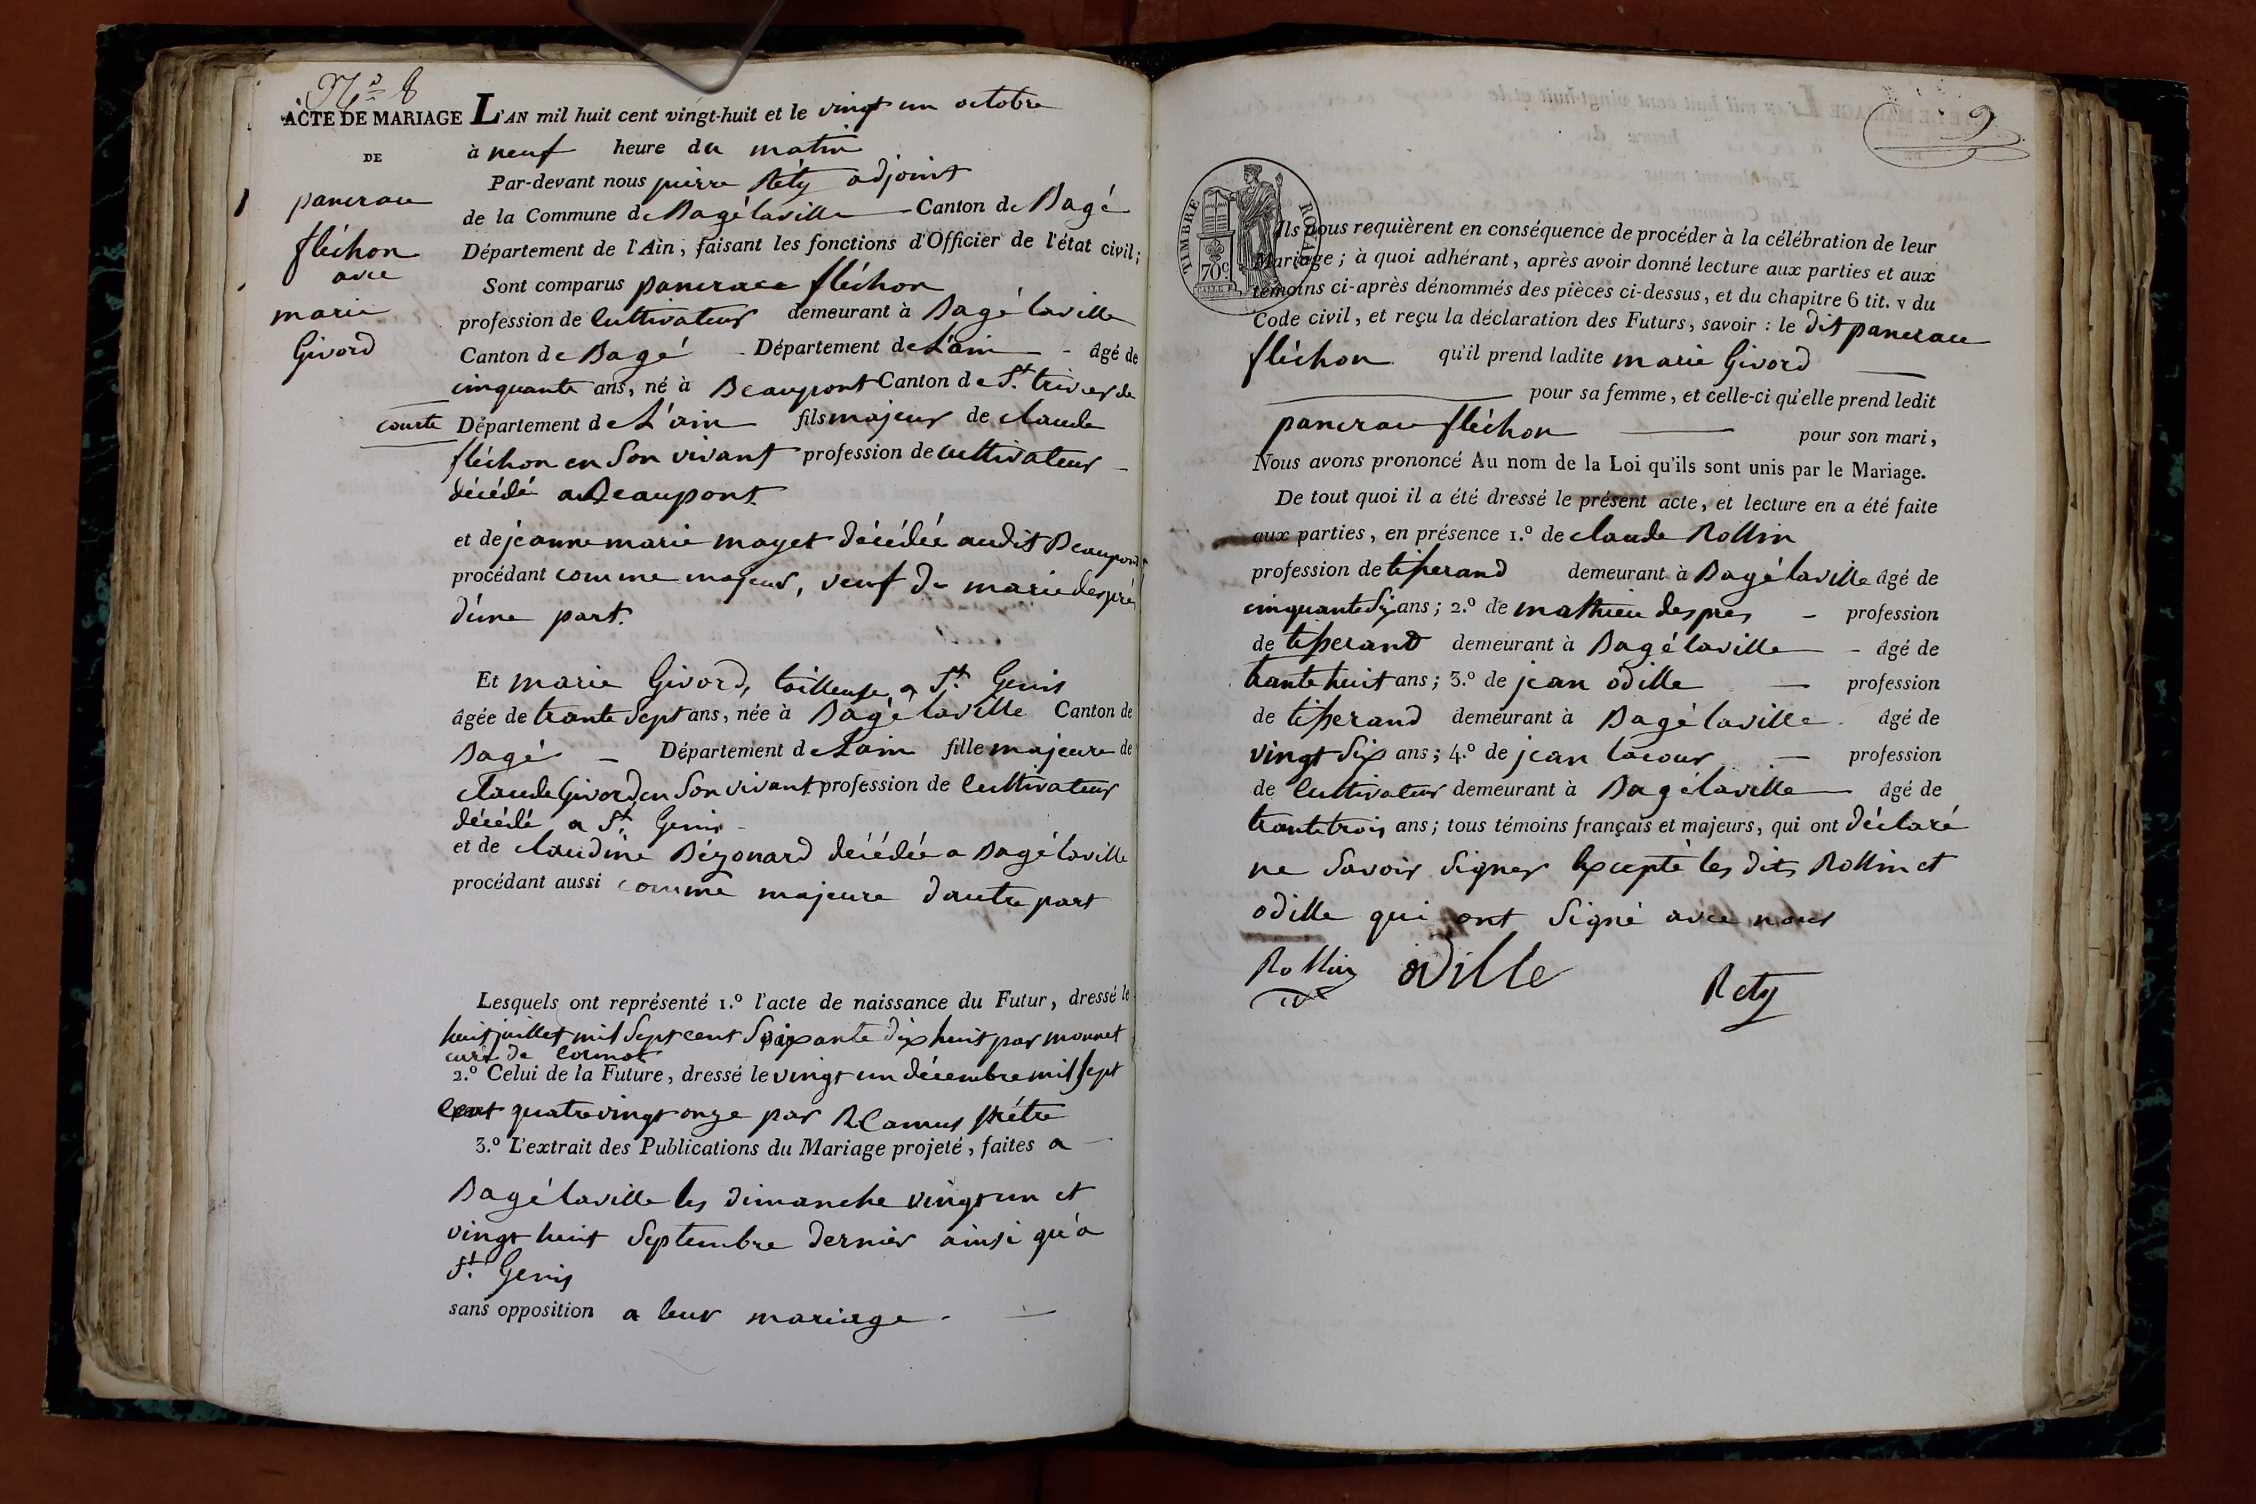 N.o 8
ACTE DE MARIAGE
DE
pancrace
fléchon
avec
marie
Givord
L'AN mil huit cent vingt-huit et le vingt un octobre
à neuf heure du matin
Par-devant nous pierre Réty adjoint
de la Commune de Bagé laville Canton de Bagé
Département de l'Ain, faisant les fonctions d'Officier de l'état civil;
Sont comparus pancrace fléchon
profession de Cultivateur demeurant à Bagé laville
Canton de Bagé - Département de L'ain - âgé de
cinquante ans, né à Beaupont Canton de St. trivier de
courte Département de L'ain fils majeur de claude
fléchon en Son vivant profession de cultivateur
décédé a Beaupont
et de jeanne marie mayet décédée audit Beaupont
procédant comme majeur, veuf de marie desprès
d'une part.
Et marie Givord, tailleuse a St. Genis
âgée de trante Sept ans, née à Bagé laville Canton de
Bagé - Département de L'ain fille majeure de
claude Givord en Son vivant profession de Cultivateur
décédé a St. Genis
et de claudine Bézonard décédée a Bagé laville
procédant aussi comme majeure d'autre part
Lesquels ont représenté 1.o l'acte de naissance du Futur, dressé le
huit juillet mil Sept cent Soixante dix huit par monnet
curé de Cormot
2.o Celui de la Future, dressé le vingt un décembre mil Sept
Cent quatrevingt onze par R Camus prêtre
3.o L'extrait des Publications du Mariage projeté, faites a
Bagé laville les dimanche vingt un et
vingt huit Septembre dernier ainsi qu'a
St. Genis
sans opposition a leur mariage.
2
TIMBRE ROYAL
70c
Ils nous requièrent en conséquence de procéder à la célébration de leur
Mariage; à quoi adhérant, après avoir donné lecture aux parties et aux
témoins ci-après dénommés des pièces ci-dessus, et du chapitre 6 tit. v du
Code civil, et reçu la déclaration des Futurs, savoir : le dit pancrace
fléchon qu'il prend ladite marie Givord
pour sa femme, et celle-ci qu'elle prend ledit
pancrace fléchon pour son mari,
Nous avons prononcé Au nom de la Loi qu'ils sont unis par le Mariage.
De tout quoi il a été dressé le présent acte, et lecture en a été faite
aux parties, en présence 1.o de claude Rollin
profession de tisserand demeurant à Bagé laville âgé de
cinquante Six ans; 2.o de mathieu despres - profession
de tisserand demeurant à Bagé laville - âgé de
trante huit ans; 3.o de jean odille profession
de tisserand demeurant à Bagé laville âgé de
vingt Six ans; 4.o de jean lacour profession
de Cultivateur demeurant à Bagé laville âgé de
trante trois ans; tous témoins français et majeurs, qui ont déclaré
ne Savoir Signer Excepté les dits Rollin et
odille qui ont Signé avec nous
Rollin odille Rety